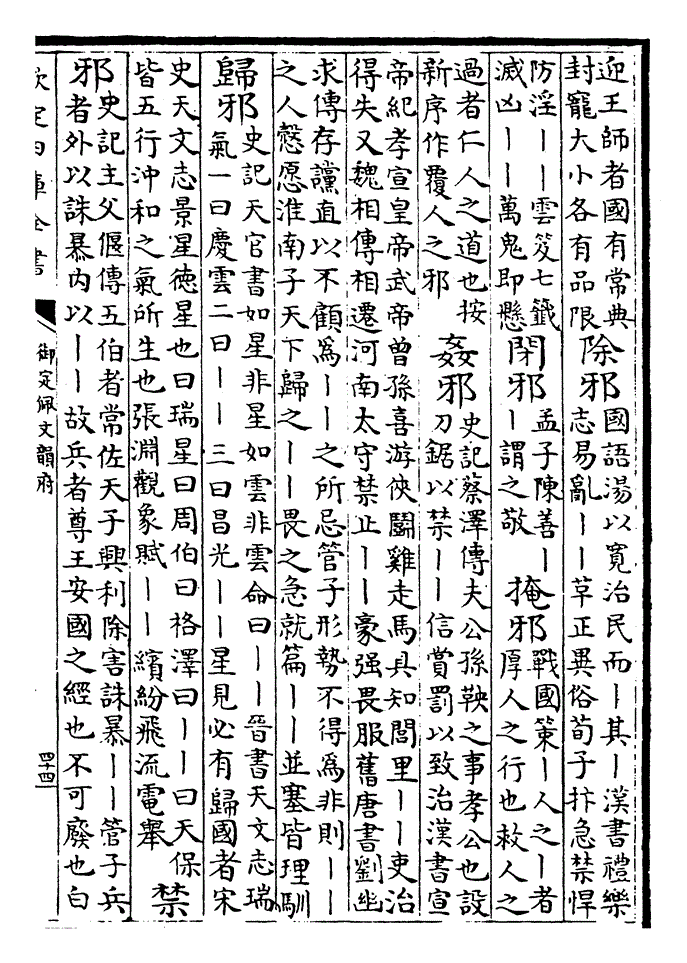 迎王師者國有常典
封寵大小各有品限
除邪
國語湯以寬治民而丨其丨漢書禮樂
志易亂丨丨草正異俗荀子抃急禁悍
防淫丨丨雲笈七籤
滅凶丨丨萬鬼即懸
閉邪
孟子陳善丨
丨謂之敬
掩邪
戰國策丨人之丨者
厚人之行也救人之
過者仁人之道也按
新序作覆人之邪
姦邪
史記蔡澤傳夫公孫鞅之事孝公也設
刀鋸以禁丨丨信賞罰以致治漢書宣
帝紀孝宣皇帝武帝曾孫喜游俠鬭雞走馬具知閭里丨丨吏治
得失又魏相傳相遷河南太守禁止丨丨豪强畏服舊唐書劉幽
求傳存讜直以不顧為丨丨之所忌管子形勢不得為非則丨丨
之人慤愿淮南子天下歸之丨丨畏之急就篇丨丨並塞皆理馴
歸邪
史記天官書如星非星如雲非雲命曰丨丨晉書天文志瑞
氣一曰慶雲二曰丨丨三曰昌光丨丨星見必有歸國者宋
史天文志景星徳星也曰瑞星曰周伯曰格澤曰丨丨曰天保
皆五行沖和之氣所生也張淵觀象賦丨丨繽紛飛流電舉
禁
邪
史記主父偃傳五伯者常佐天子興利除害誅暴丨丨管子兵
者外以誅暴内以丨丨故兵者尊王安國之經也不可廢也白
欽定四庫全書
御定佩文韻府
四十四